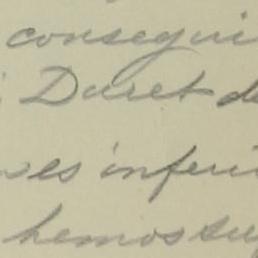 consegui
Duret de
es inferi
hemos su